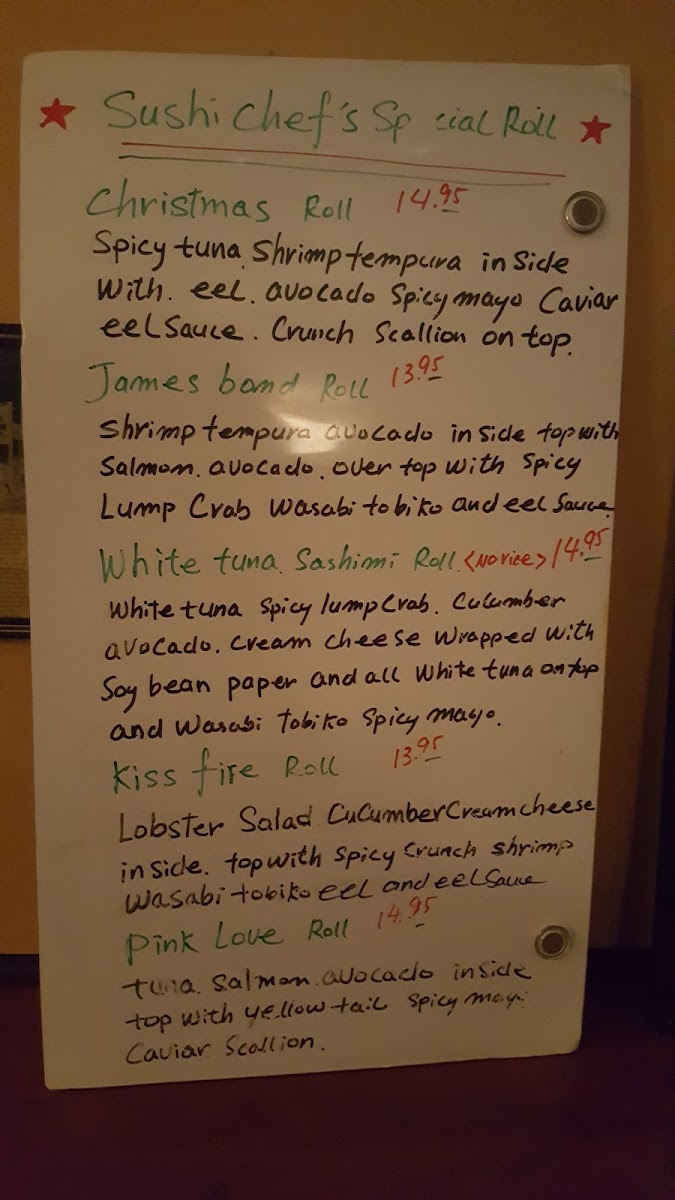 Sushi Chef's Sp cial Roll
Christmas Roll 14.95
Spicy tuna. Shrimp tempura in side
With. eel. avocado Spicy mayo Caviar
eel Sauce. Crunch Scallion on top.
James band Roll 13.95
Shrimp tempura avocado in side top with
Salmon. avocado. over top with Spicy
Lump Crab Wasabi tobiko and eel Sauce
White tuna. Sashimi Roll <No rice> 14.95
White tuna Spicy lump Crab. Cucumber
avocado. Cream cheese Wrapped with
Soy bean paper and all White tuna on top
and Wasabi tobiko Spicy mayo.
Kiss fire Roll 13.95
Lobster Salad Cucumber Cream cheese
in side. top with Spicy Crunch shrimp
Wasabi tobiko eel and eel Sauce
Pink Love Roll 14.95
tuna. Salmon. avocado in side
top with yellow tail Spicy may
Caviar Scallion.